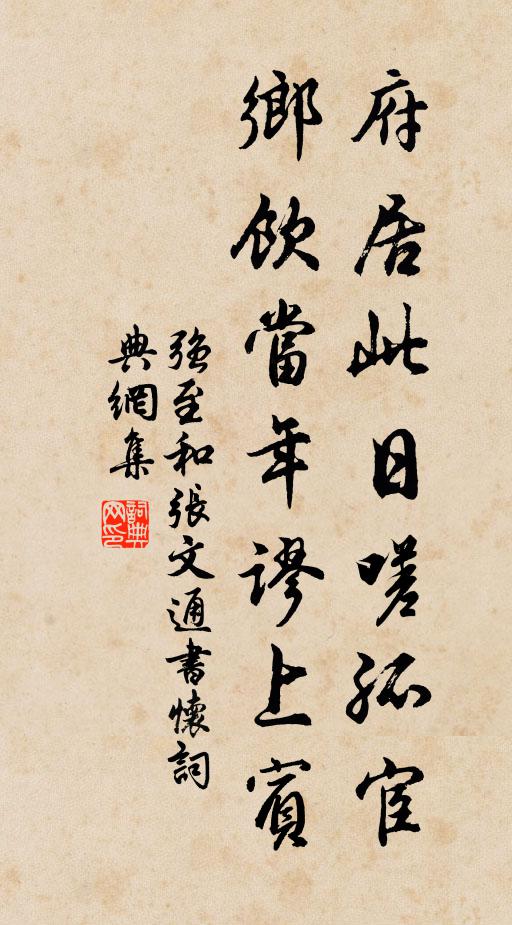 府居此日嗟孤宦
鄉飲當年謬上賓
強至和張文通書懷詞
典網集
詞典網印